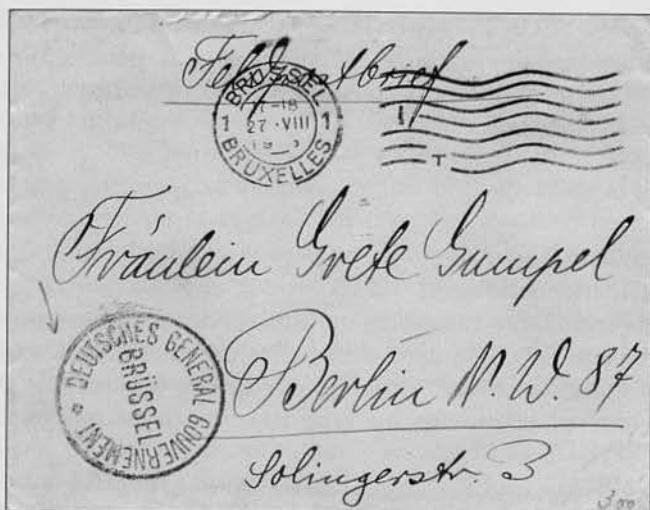 Feldpostbrief
BRÜSSEL
17-18
1 27·VIII 1
BRUXELLES
Fräulein Grete Gumpel
DEUTSCHES GENERAL GOUVERNEMENT
BRÜSSEL
Berlin N.W. 87
Solingerstr. 3
300